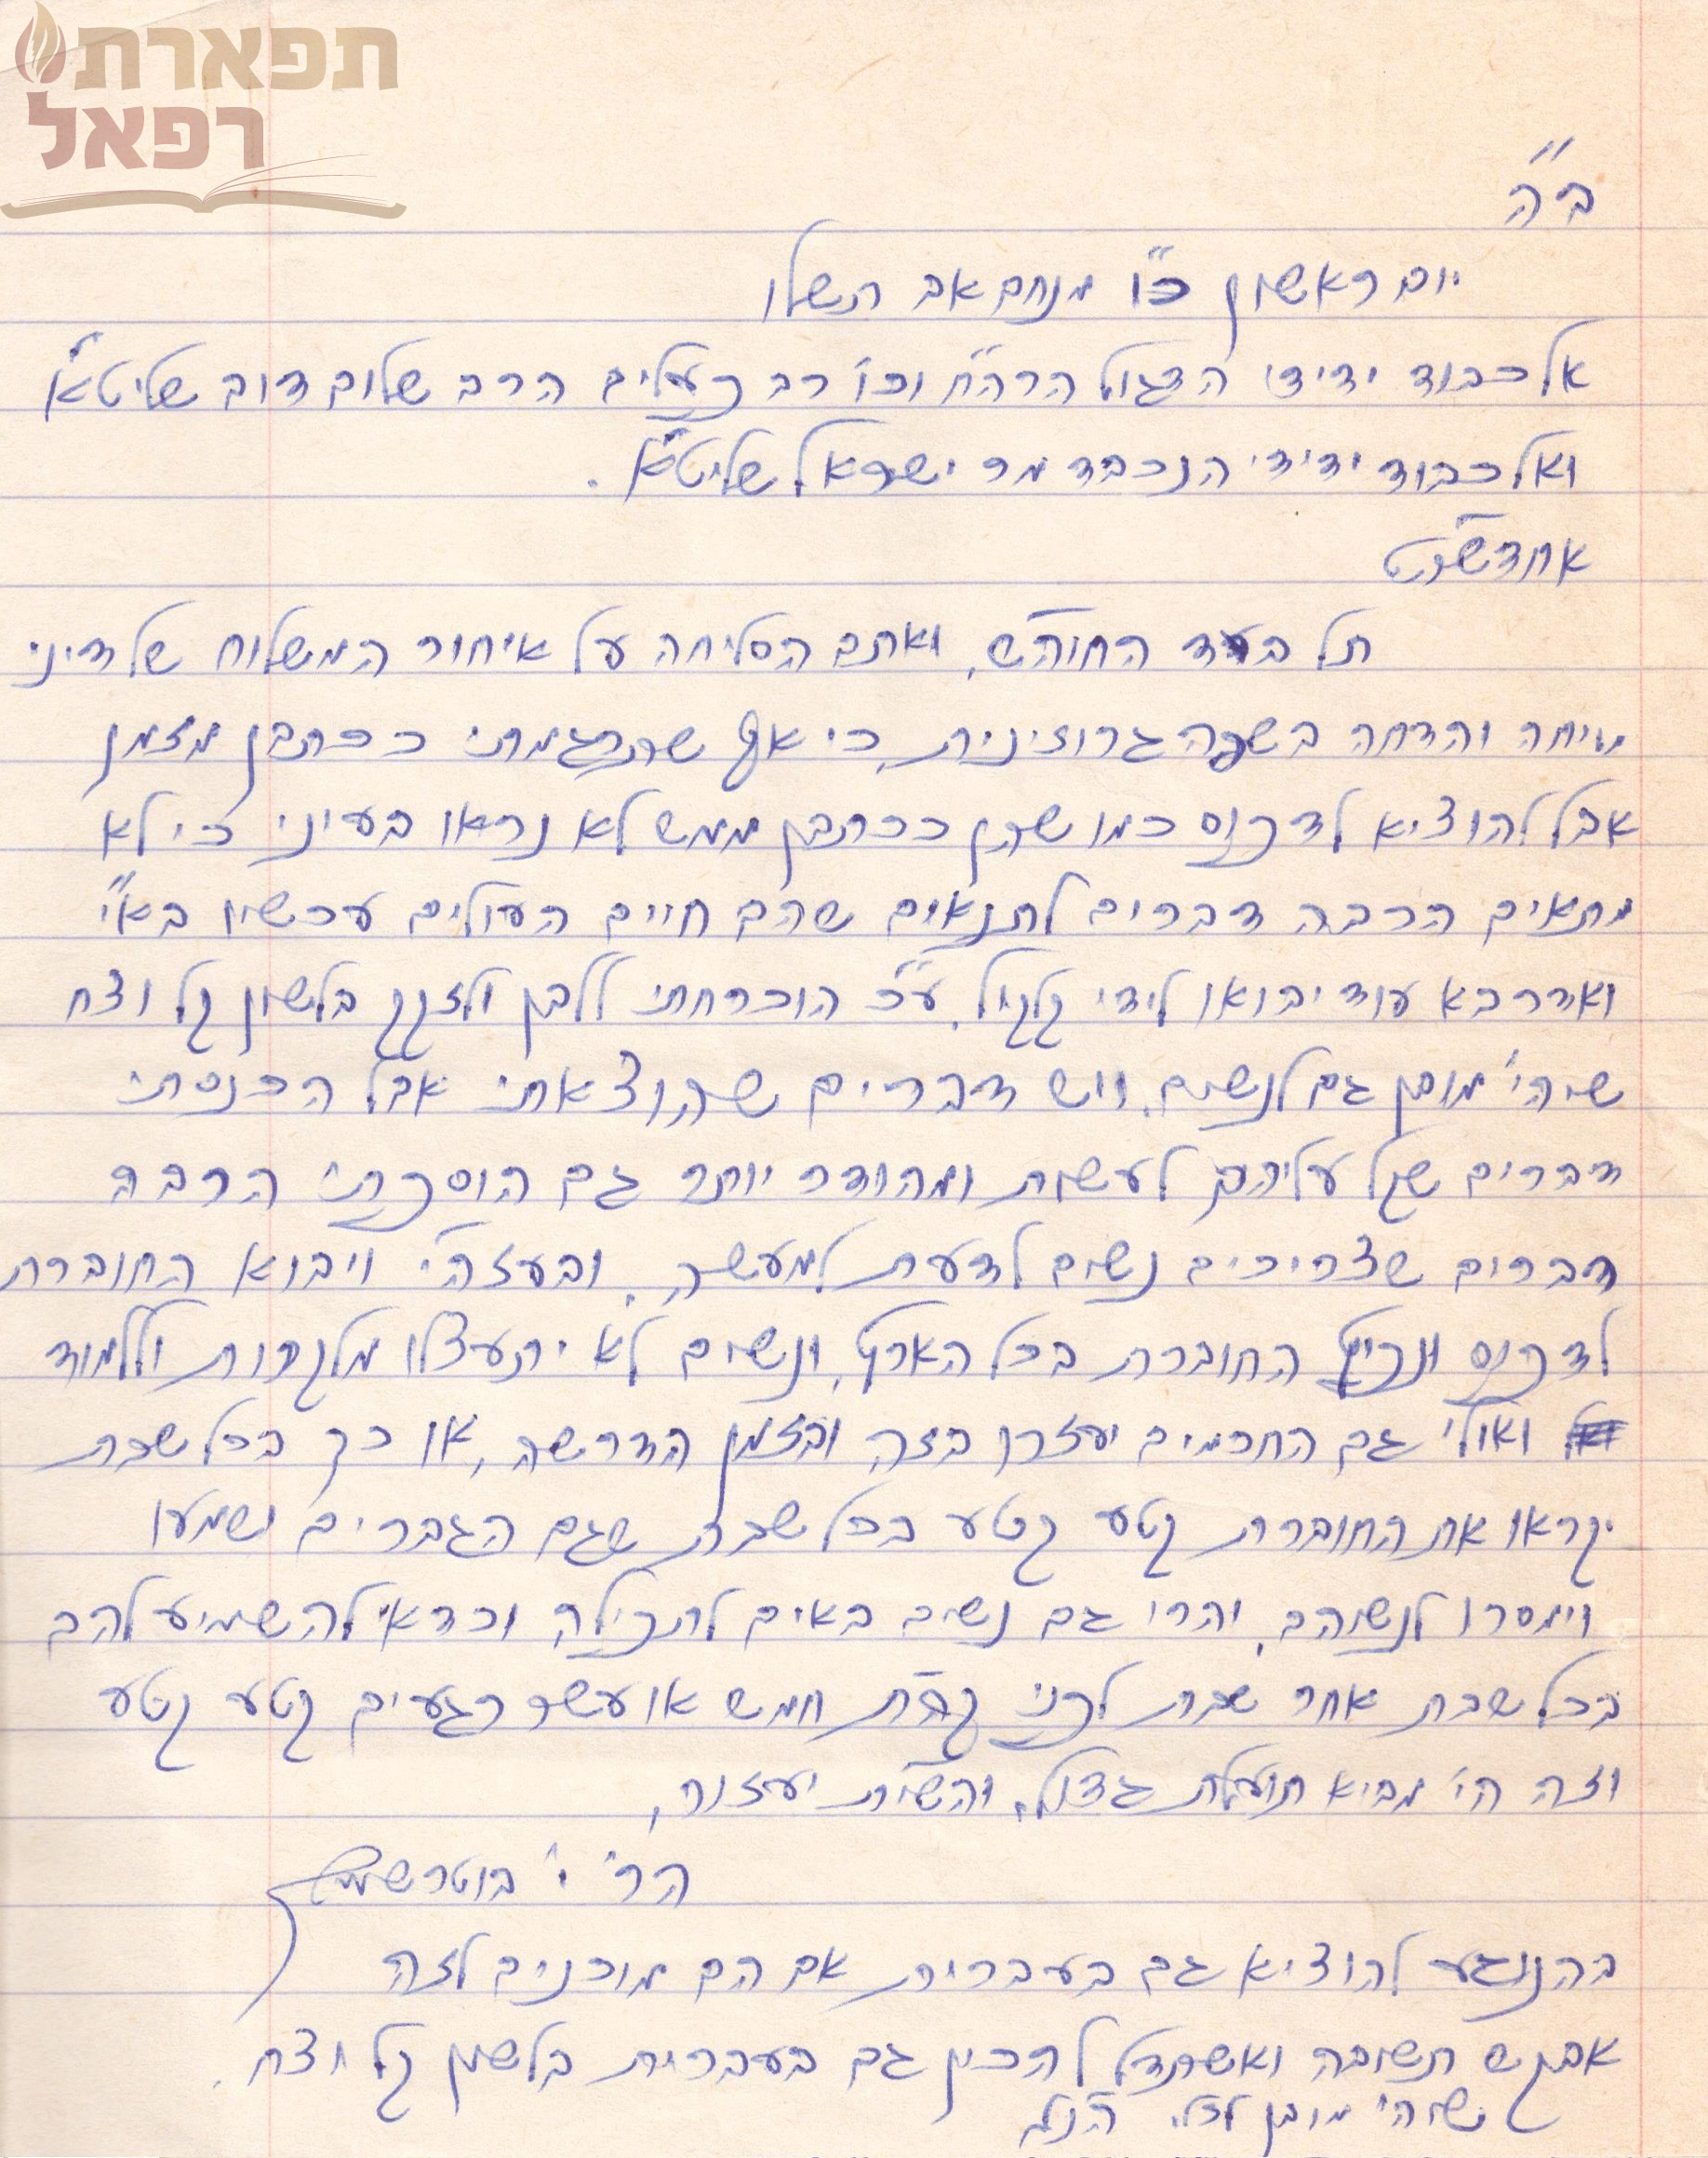 תפארת
רפאל
ב"ה
יום ראשון כ"ו מנחם אב תשלו
אל כבוד ידידי הדגול הרה"ח וכו' רב פעלים הרב שלום דוב שליט"א
ואל כבוד ידידי הנכבד מר ישראל שליט"א.
אחדשו"ט
תל בעד החוה"ש, ואתם הסליחה על איחור המשלוח של דיני
מיחה והדחה בשפה גרוזינית, כי אף שתרגמתי ככתבן מזמן
אבל להוציא לדפוס כמו שהן ככתבן ממש לא נראו בעיני כי לא
מתאים הרבה דברים לתנאים שהם חיים העולים עכשיו בא"י
ואדרבא עוד יבואו לידי קלקול, ע"כ הוכרחתי ללבן ולזקק בלשון קל וצח
שיהי' מובן גם לנשים. ויש דברים שהוצאתי אבל הכנסתי
דברים שקל עליהם לעשות ומהודר יותר גם הוספתי הרבה
דברים שצריכים נשים לדעת למעשה, ובעזה"י ויבוא החוברת
לדפוס ונפיץ החוברת בכל הארץ, ונשים לא יתעצלו מלקרות וללמוד
ואולי גם החכמים יעזרו בזה ובזמן הדרשה, או כך בכל שבת
יקראו את החוברת קטע קטע בכל שבת שגם הגברים ושמעו
וימסרו לנשיהם, והרי גם נשים באים לתפילה וכדאי להשמיע להם
בכל שבת אחר שבת לפני קה"ת חמש או עשר רגעים קטע קטע
וזה הי' מביא תועלת גדול, והשי"ת יעזור,
הר' י' בוטרשוילי
בהנוגע להוציא גם בעברית אם הם מוכנים לזה
אבקש תשובה ואשתדל להכין גם בעברית בלשון קל וצח.
שיהי' מובן לכל. הנ"ל